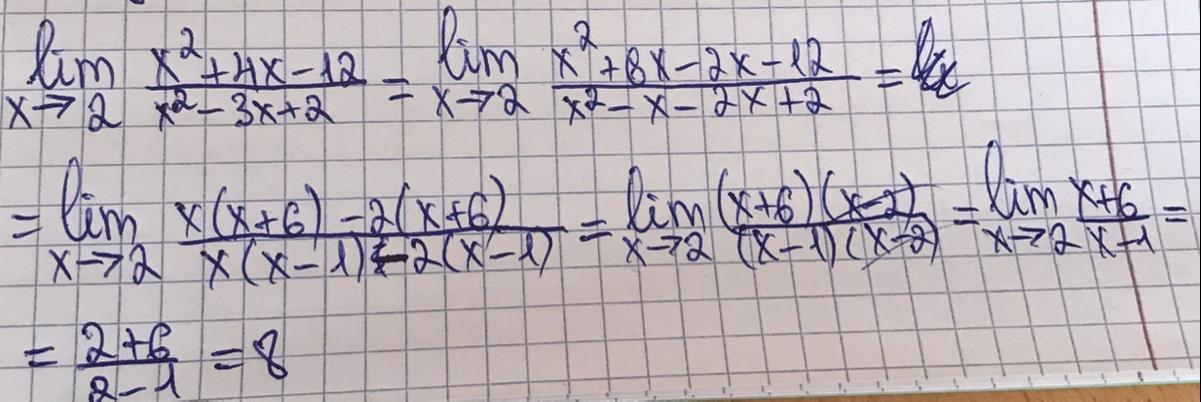 lim x→2 (x² + 4x − 12)/(x² − 3x + 2) = lim x→2 (x² + 6x − 2x − 12)/(x² − x − 2x + 2) =
= lim x→2 (x(x+6) − 2(x+6))/(x(x−1) − 2(x−1)) = lim x→2 ((x+6)(x−2))/((x−1)(x−2)) = lim x→2 (x+6)/(x−1) =
= (2+6)/(2−1) = 8